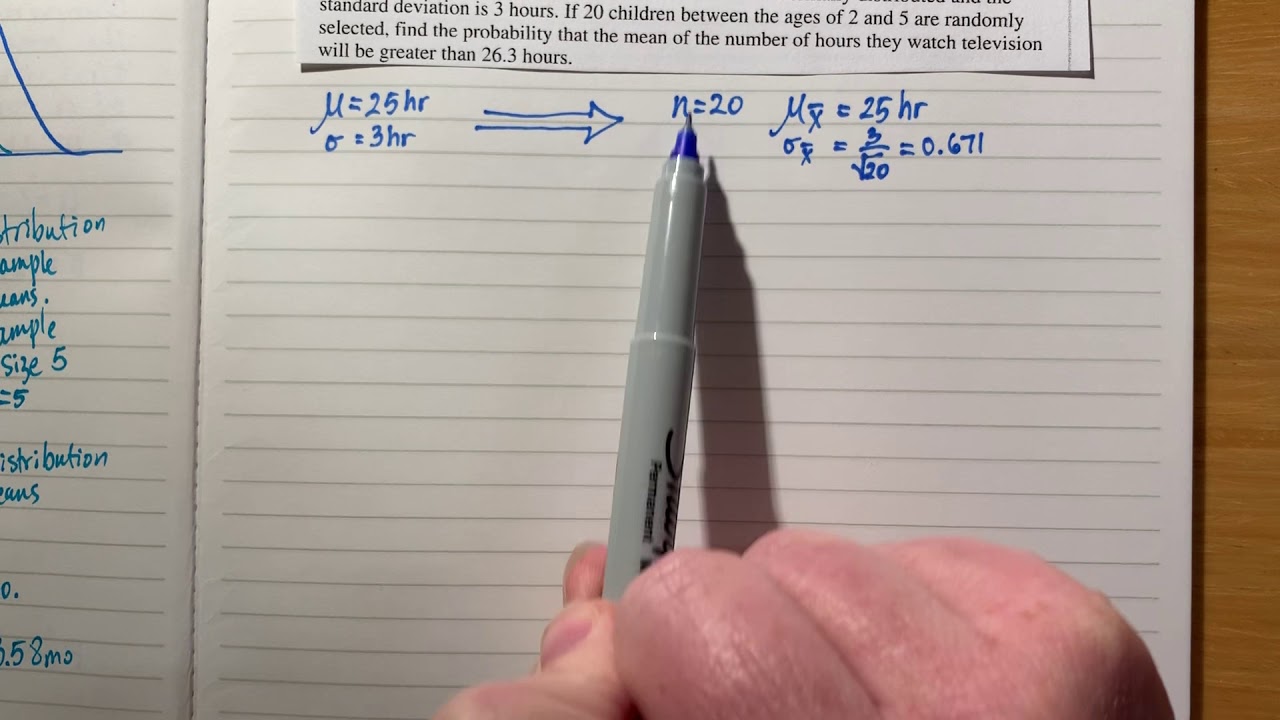 standard deviation is 3 hours. If 20 children between the ages of 2 and 5 are randomly
selected, find the probability that the mean of the number of hours they watch television
will be greater than 26.3 hours.
μ = 25 hr
σ = 3 hr
n = 20
μx̄ = 25 hr
σx̄ = 3/√20 = 0.671
tribution
ample
eans.
ample
size 5
=5
istribution
eans
o.
.58 mo
Permanent